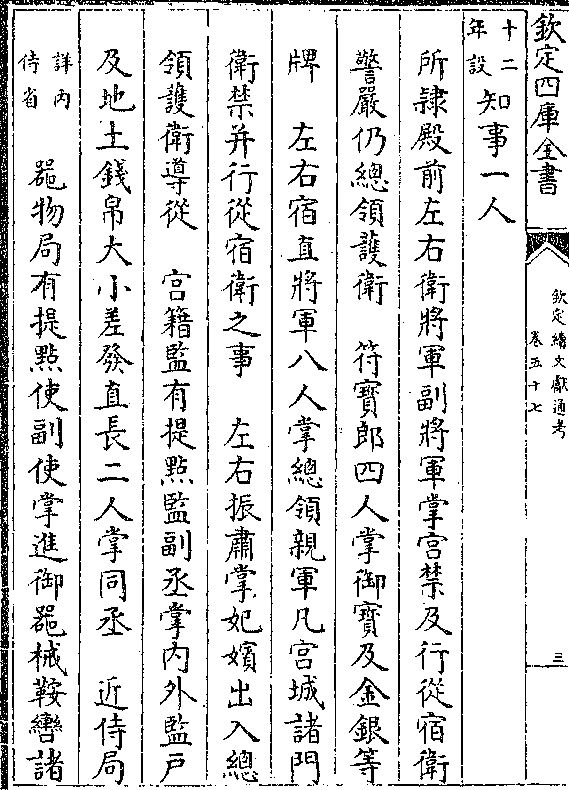 欽定四庫全書
欽定續文獻通考
卷五十七
三
十二
年設
知事一人
所隸殿前左右衛將軍副將軍掌宫禁及行從宿衛
警嚴仍總領護衛　符寶郎四人掌御寶及金銀等
牌　左右宿直將軍八人掌總領親軍凡宫城諸門
衛禁并行從宿衛之事　左右振肅掌妃嬪出入總
領護衛導從　宫籍監有提點監副丞掌内外監戶
及地土錢帛大小差發直長二人掌同丞　近侍局
詳内
侍省
噐物局有提點使副使掌進御噐械鞍轡諸